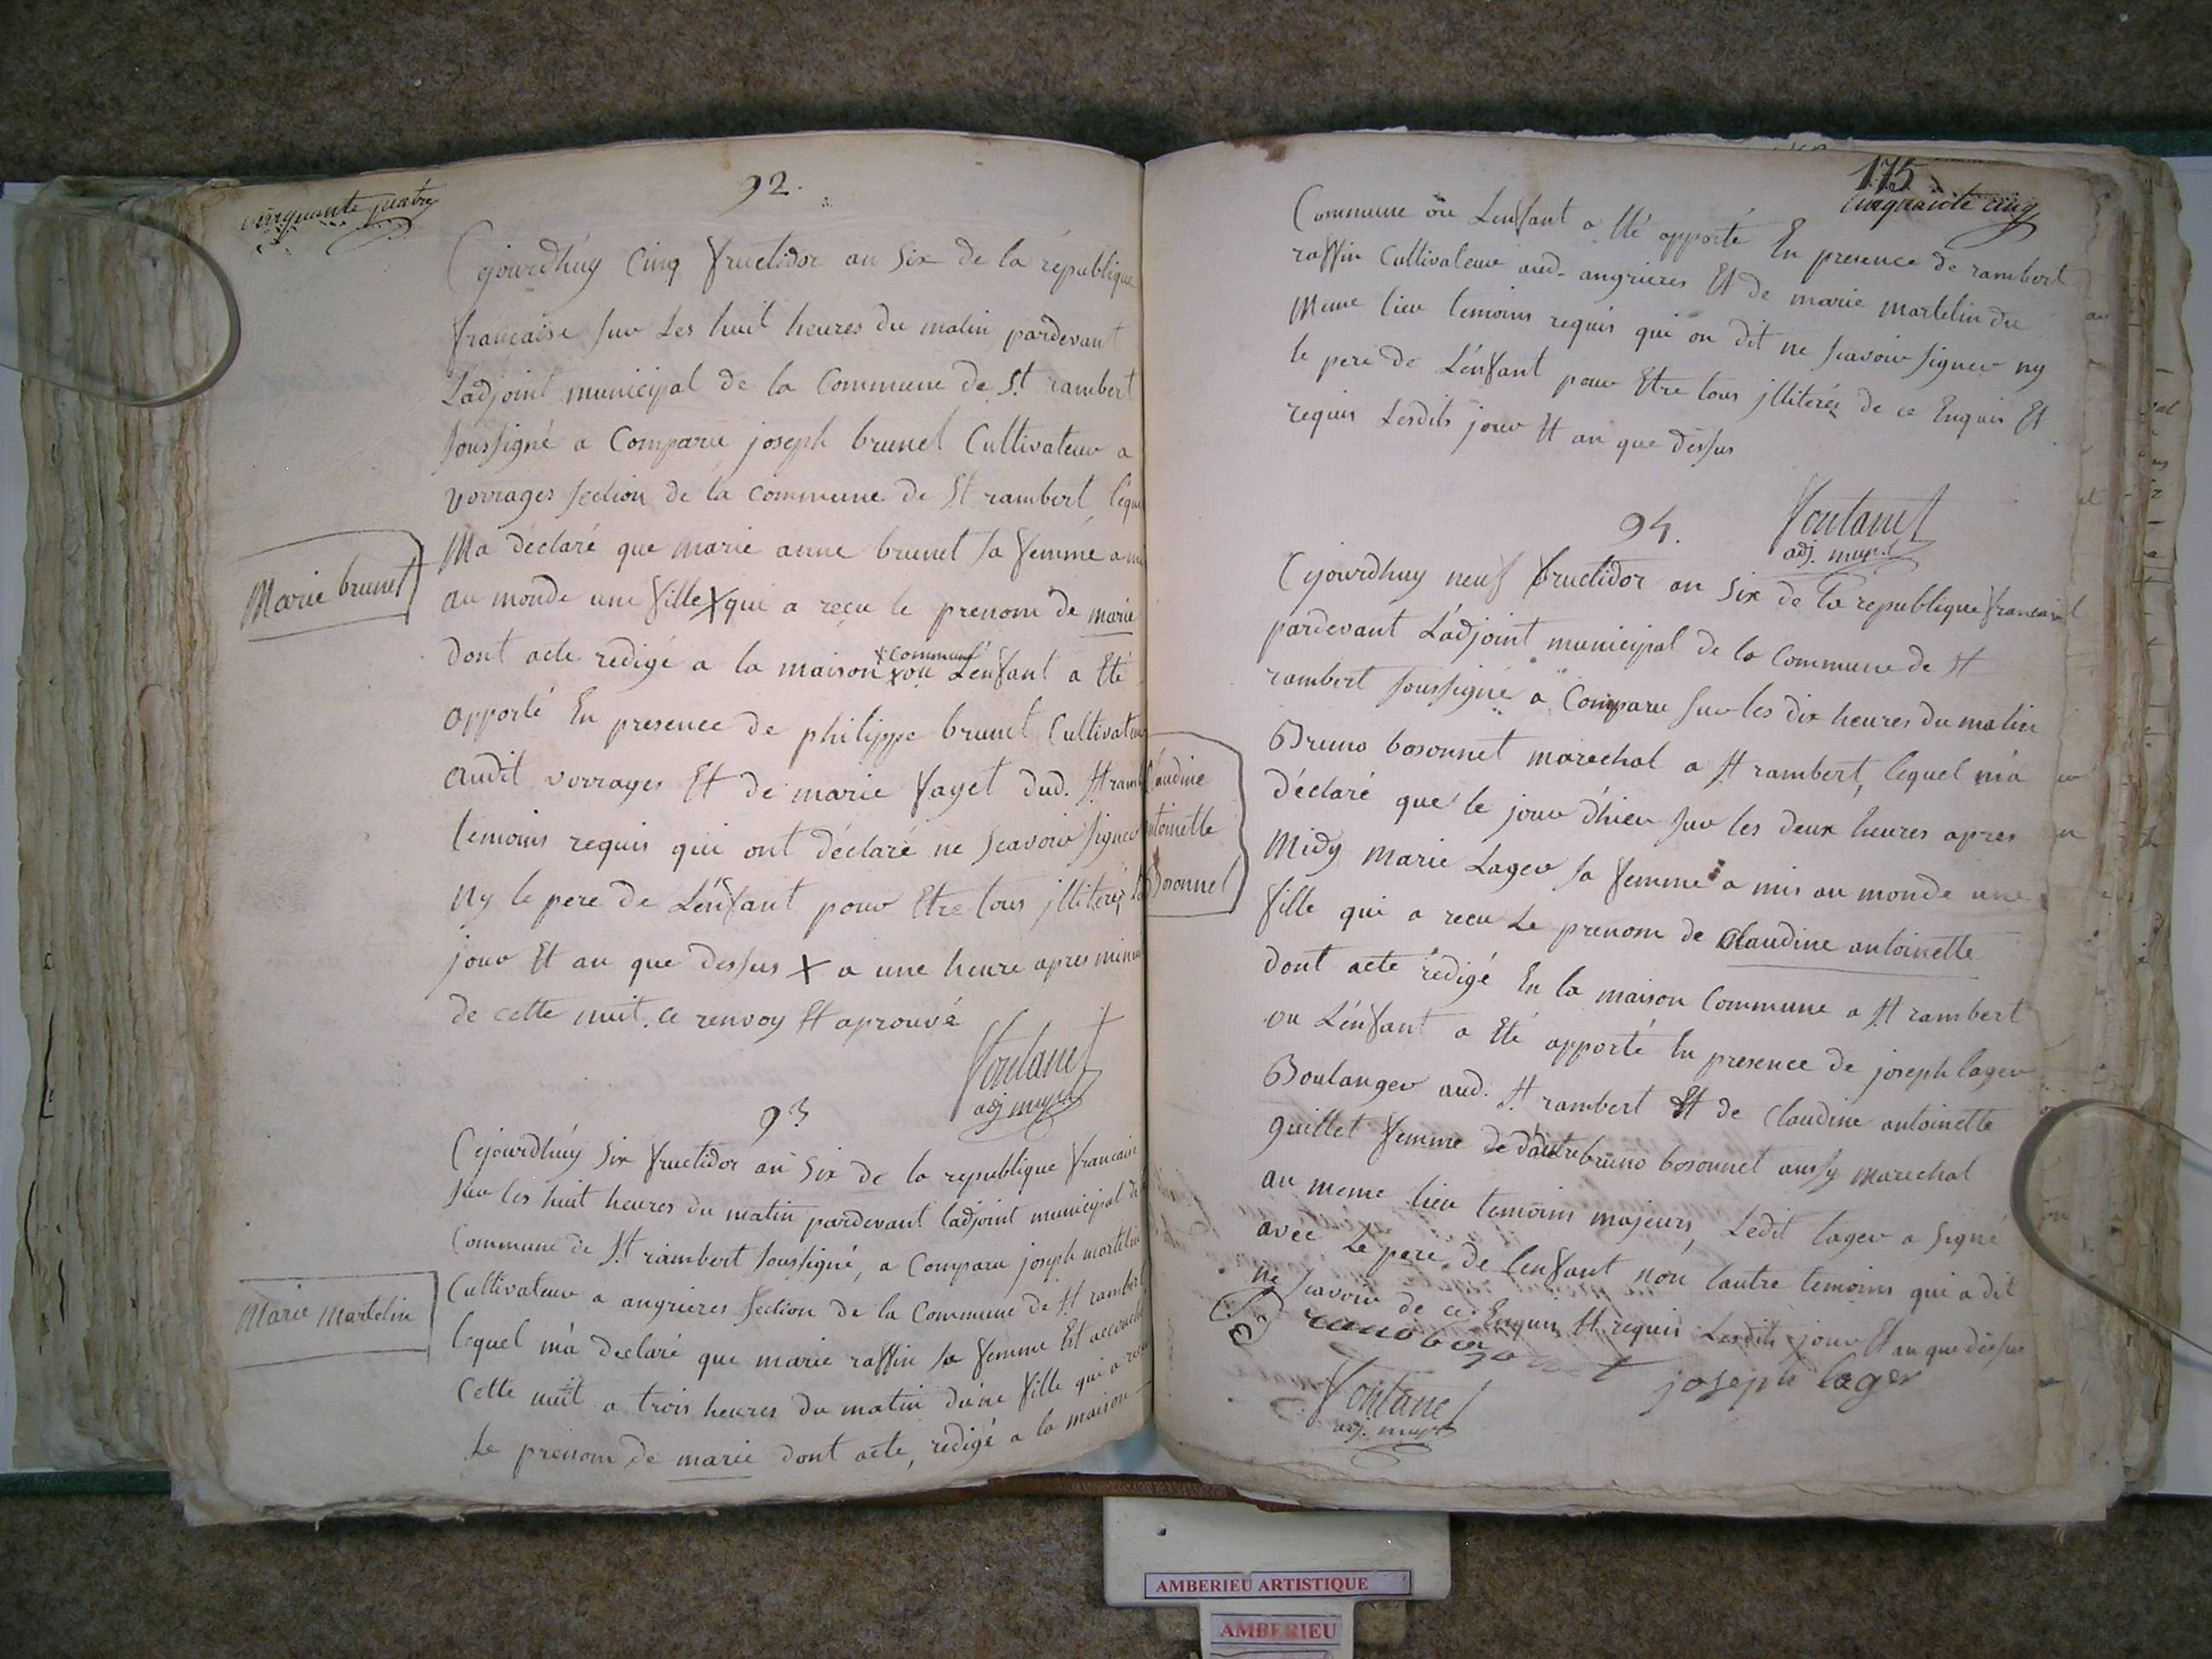 cinquante quatre
92.
Cejourdhuy Cinq fructidor an Six de la république
française sur les huit heures du matin pardevant
L'adjoint municipal de la Commune de St rambert
soussigné a Comparu joseph brunet Cultivateur a
vorrages section de la commune de St rambert lequ
Ma déclaré que marie anne brunet sa femme a m
Marie brunet
au monde une fille X qui a recu le prenom de marie
dont acte redigé a la maison x ou L'enfant a Eté
x commune
apporté En presence de philippe brunet Cultivateu
audit vorrages Et de marie fayet dud. St ram
temoins requis qui ont déclaré ne scavoir signer
ny le pere de L'enfant pour Etre tous jllitérés
jour Et an que dessus X a une heure apres minu
de cette nuit. ce renvoy Et aprouvé
foutanet
adj mupal
93
Cejourdhuy Six fructidor an Six de la republique francaise
sur les huit heures du matin pardevant ladjoint municipal de
Commune de St rambert soussigné, a Comparu joseph martelin
Cultivateur a angrieres section de la Commune de St rambert
Marie Martelin
lequel m'a declaré que marie raffin sa femme Est accouche
Cette nuit a trois heures du matin d'une fille qui a recu
Le prenom de marie dont acte, redigé a la maison
175
Cinquante cinq
Commune ou L'enfant a Eté apporté En presence de rambert
raffin Cultivateur aud. angrieres Et de marie martelin du
Meme lieu temoins requis qui on dit ne scavoir signer ny
le pere de L'enfant pour Etre tous jllitérés de ce Enquis Et
requis Lesdits jour Et an que dessus
foutanet
adj. mup.l
94.
Cejourdhuy neuf fructidor an Six de la republique francaise
pardevant L'adjoint municipal de la Commune de St
rambert soussigné a Comparu sur les dix heures du matin
Bruno bosonnet marechal a St rambert, lequel m'a
déclaré que le jour d'hier sur les deux heures apres
Claudine
antoinette
Bosonnet
Midy marie Lager sa femme a mis au monde une
fille qui a recu Le prenom de Claudine antoinette
dont acte rédigé En la maison Commune a St rambert
ou L'enfant a Eté apporté En presence de joseph lager
Boulanger aud. St rambert Et de Claudine antoinette
guillet femme de d'autre bruno bosonnet aussy marechal
au meme lieu temoins majeurs, Ledit lager a signé
avec Le pere de lenfant non lautre temoins qui a dit
ne scavoir de ce Enquis Et requis Lesdits jour Et an que dessus
joseph lager
foutanet
adj. mupal
AMBERIEU ARTISTIQUE
AMBERIEU